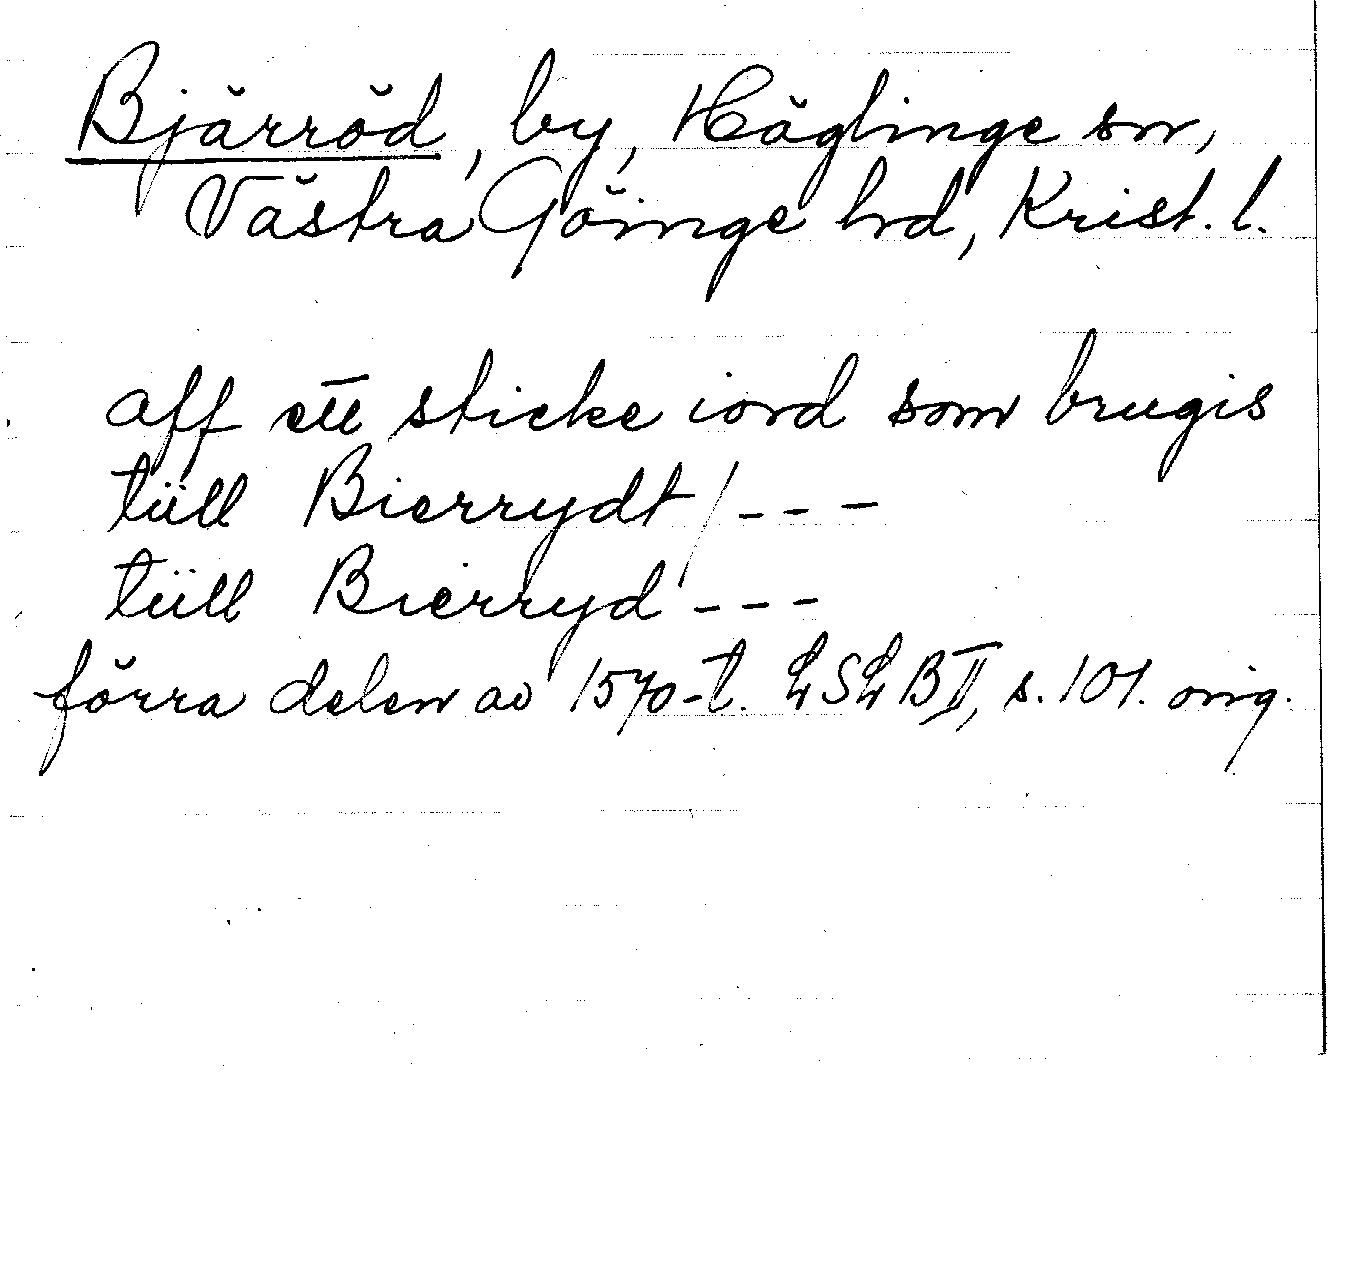 Bjärröd, by, Häglinge sn,
Västra Göinge hd, Krist. l.
aff ett sticke iord som brugis
tiill Bierrydt / - - -
tiill Bierryd - - -
förra delen av 1570-t. LSLB II, s. 101. orig.